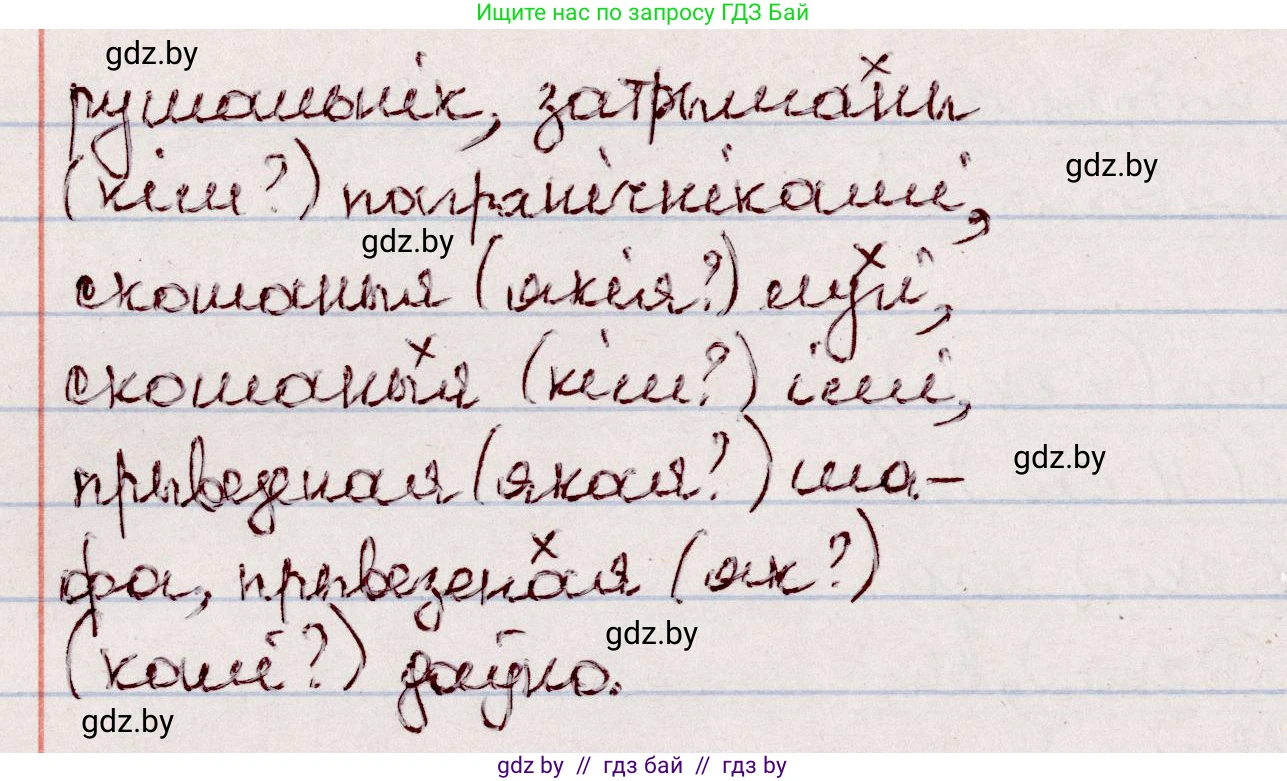 Ищите нас по запросу ГДЗ Бай
gdz.by
рушальнік, затрыманы
(кім?) пагранічнікамі,
gdz.by
gdz.by
скошаныя (якія?) лугі,
скошаныя (кім?) імі,
прывезеная (якая?) ша-
gdz.by
фа, прывезеная (як?)
(калі?) даўно.
gdz.by
gdz.by
gdz.by // гдз бай // гдз by